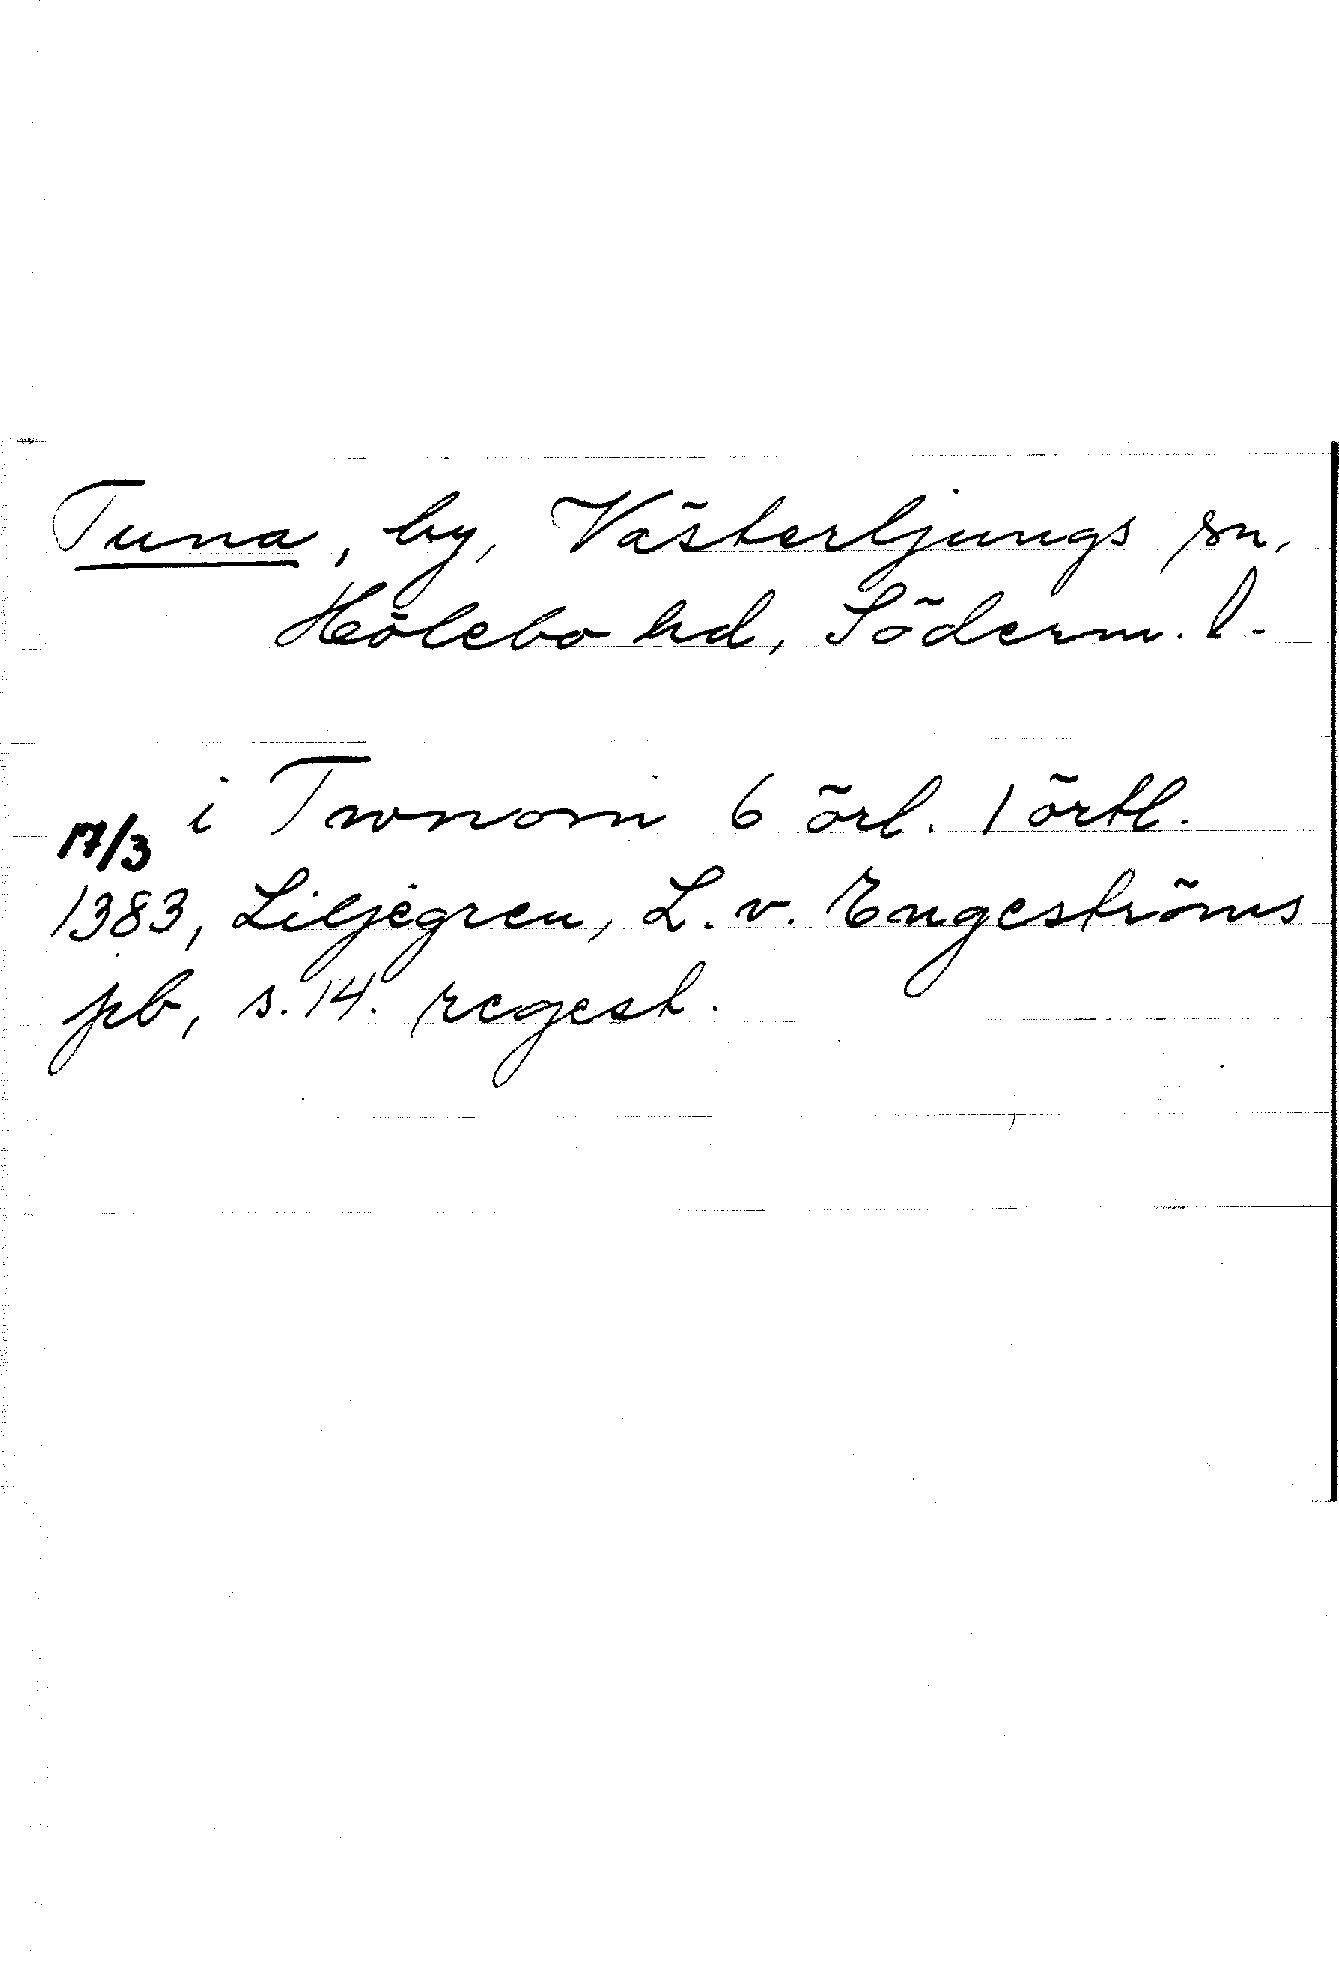 Tuna, by, Västerljungs sn,
Hölebo hd, Söderm. l.
i Twnom 6 örl. 1 örtl.
17/3
1383, Liljegren, L. v. Engeströms
pb, s. 14. regest.